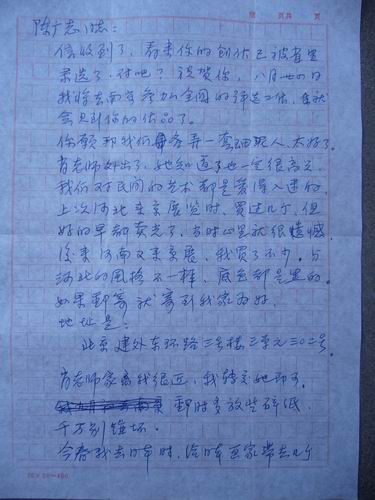 陈广志小老：
信收到了，看来你的创作已被省里
录选了，对吧？祝贺你，八月廿四日
我将去南京参加全国的评选工作，在就
会见到你的作品了。
你愿帮我们弄一窝泥人，太好了。
肖老师外出了，她知道了也一定很高兴，
我们对民间的艺术都是爱得入迷的。
上次河北来京展览时，买过几个，但
好的早都卖光了，当时心里就很遗憾。
后来河南又来京展，我买了不少，与
河北的风格不一样，底色都是黑的。
如果邮寄就寄到我家为好，
地址是：
北京建外东环路三号楼三单元三〇二号
肖老师家离我很近，我转交她即可。
邮时多放些碎纸，
千万别碰坏。
今春我去日本时，给日本画家带去几个
页共 页